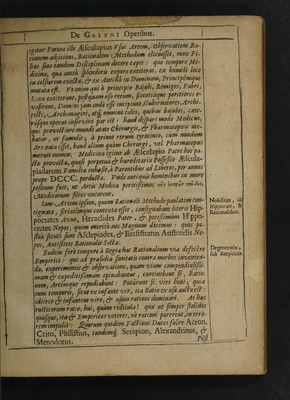 De GALENI Operibus.
igitur Parens ille Æsculapius Vsui Artem, Observationi Ra-
tionem adjiciens, Rationalem Methodum elicuisset, mox Fi-
lios suos eandem Disciplinam docere cœpit: quo tempore Me-
dicina, qua antea splendoris expers extiterat, ex humili loco
in celsiorem evecta, & ex Ancilla in Dominam, Principemque
mutata est. Vt enim qui à principio Bajuli, Remiges, Fabri,
Lixæ extiterunt, postquam eò rerum, scientiæque peritiores e-
vaserunt, Domini jam inde esse incipiunt, Gubernatores, Archi-
tecti, Archimagiri, atq; omnino tales, quibus bajulos, cæte-
rósque operas inservire par est: haud dispari modo Medicus,
qui provectiore mundi ætate Chirurgis, & Pharmacopœis ute-
batur, ut famulis, à primo rerum tyrocinio, cùm nondum
Ars nata esset, haud alium quàm Chirurgi, vel Pharmacopœi
meruit nomen. Medicina igitur ab Æsculapio Patre huc pa-
cto provecta, quasi perpetua & hæreditaria Possessio Æscula-
piadarum Familiæ inhæsit, à Parentibus ad Liberos, per annos
prope DCCC. perducta. Vnde antiquis hominibus in more
positum fuit, ut Artis Medicæ peritissimos
Medicorum filios vocarent.
Iam Artem ipsam, quum Rationali Methodo paulatim con-
tignata, seriatimque contexta esset, consignabant literis Hip-
pocrates Avus, Heraclides Pater, & potissimùm Hippo-
crates Nepos, quem meritò nos Magnum dicimus: quos po-
stea secuti sunt Asclepiades, & Erasistratus Aristotelis Ne-
pos, Antistites Rationalis Sectæ.
Eodem ferè tempore à Regia hac Rationalium via deflexêre
Empirici: qui ad præsidia sanitatis contra morbos invenien-
da, experimentis & observatione, quam viam compendiosissi-
mam & expeditissimam opinabantur, contendere si, Ratio-
nem, Artemque repudiabant: Putârunt si. viri boni, quia
tunc temporis, sicut ex infante vir, ita Ratio ex usu aucta est:
idcirco & infantem vire, & usum ratione dominari. At hæc
ruditorum ratio, huc, quàm ridicula! quæ ut semper stolidos
quosque, ita & Empiricos veteres, ni ratione parerent, in erro-
rem impulit. Quorum quidem Factioni Duces fuêre Acron,
Crito, Philistius, tandemq; Serapion, Alexandrinus, &
Menodotus.
Post
Nobilitas, ab
Hippocrate, &
Rationalibus.
Degeneratio,
sub Empiricis.